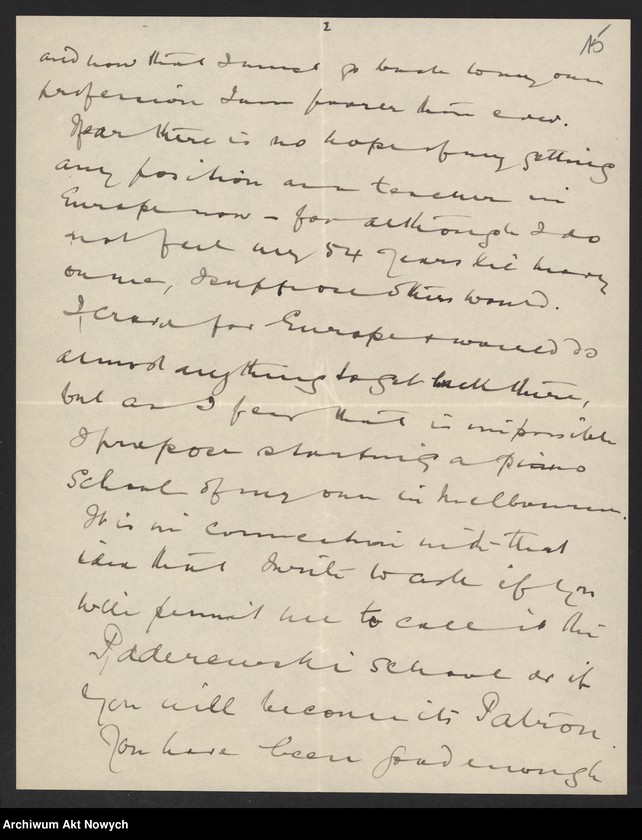 2
15
and now that I must go back to my own
profession I am poorer than ever.
I fear there is no hope of my getting
any position as a teacher in
Europe now - for although I do
not feel my 54 years lie heavy
on me, I suppose others would.
I crave for Europe & would do
almost anything to get back there,
but as I fear that is impossible
I propose starting a piano
School of my own in Melbourne.
It is in connection with that
idea that I write to ask if you
will permit me to call it the
Paderewski School or if
you will become its Patron.
You have been good enough
Archiwum Akt Nowych